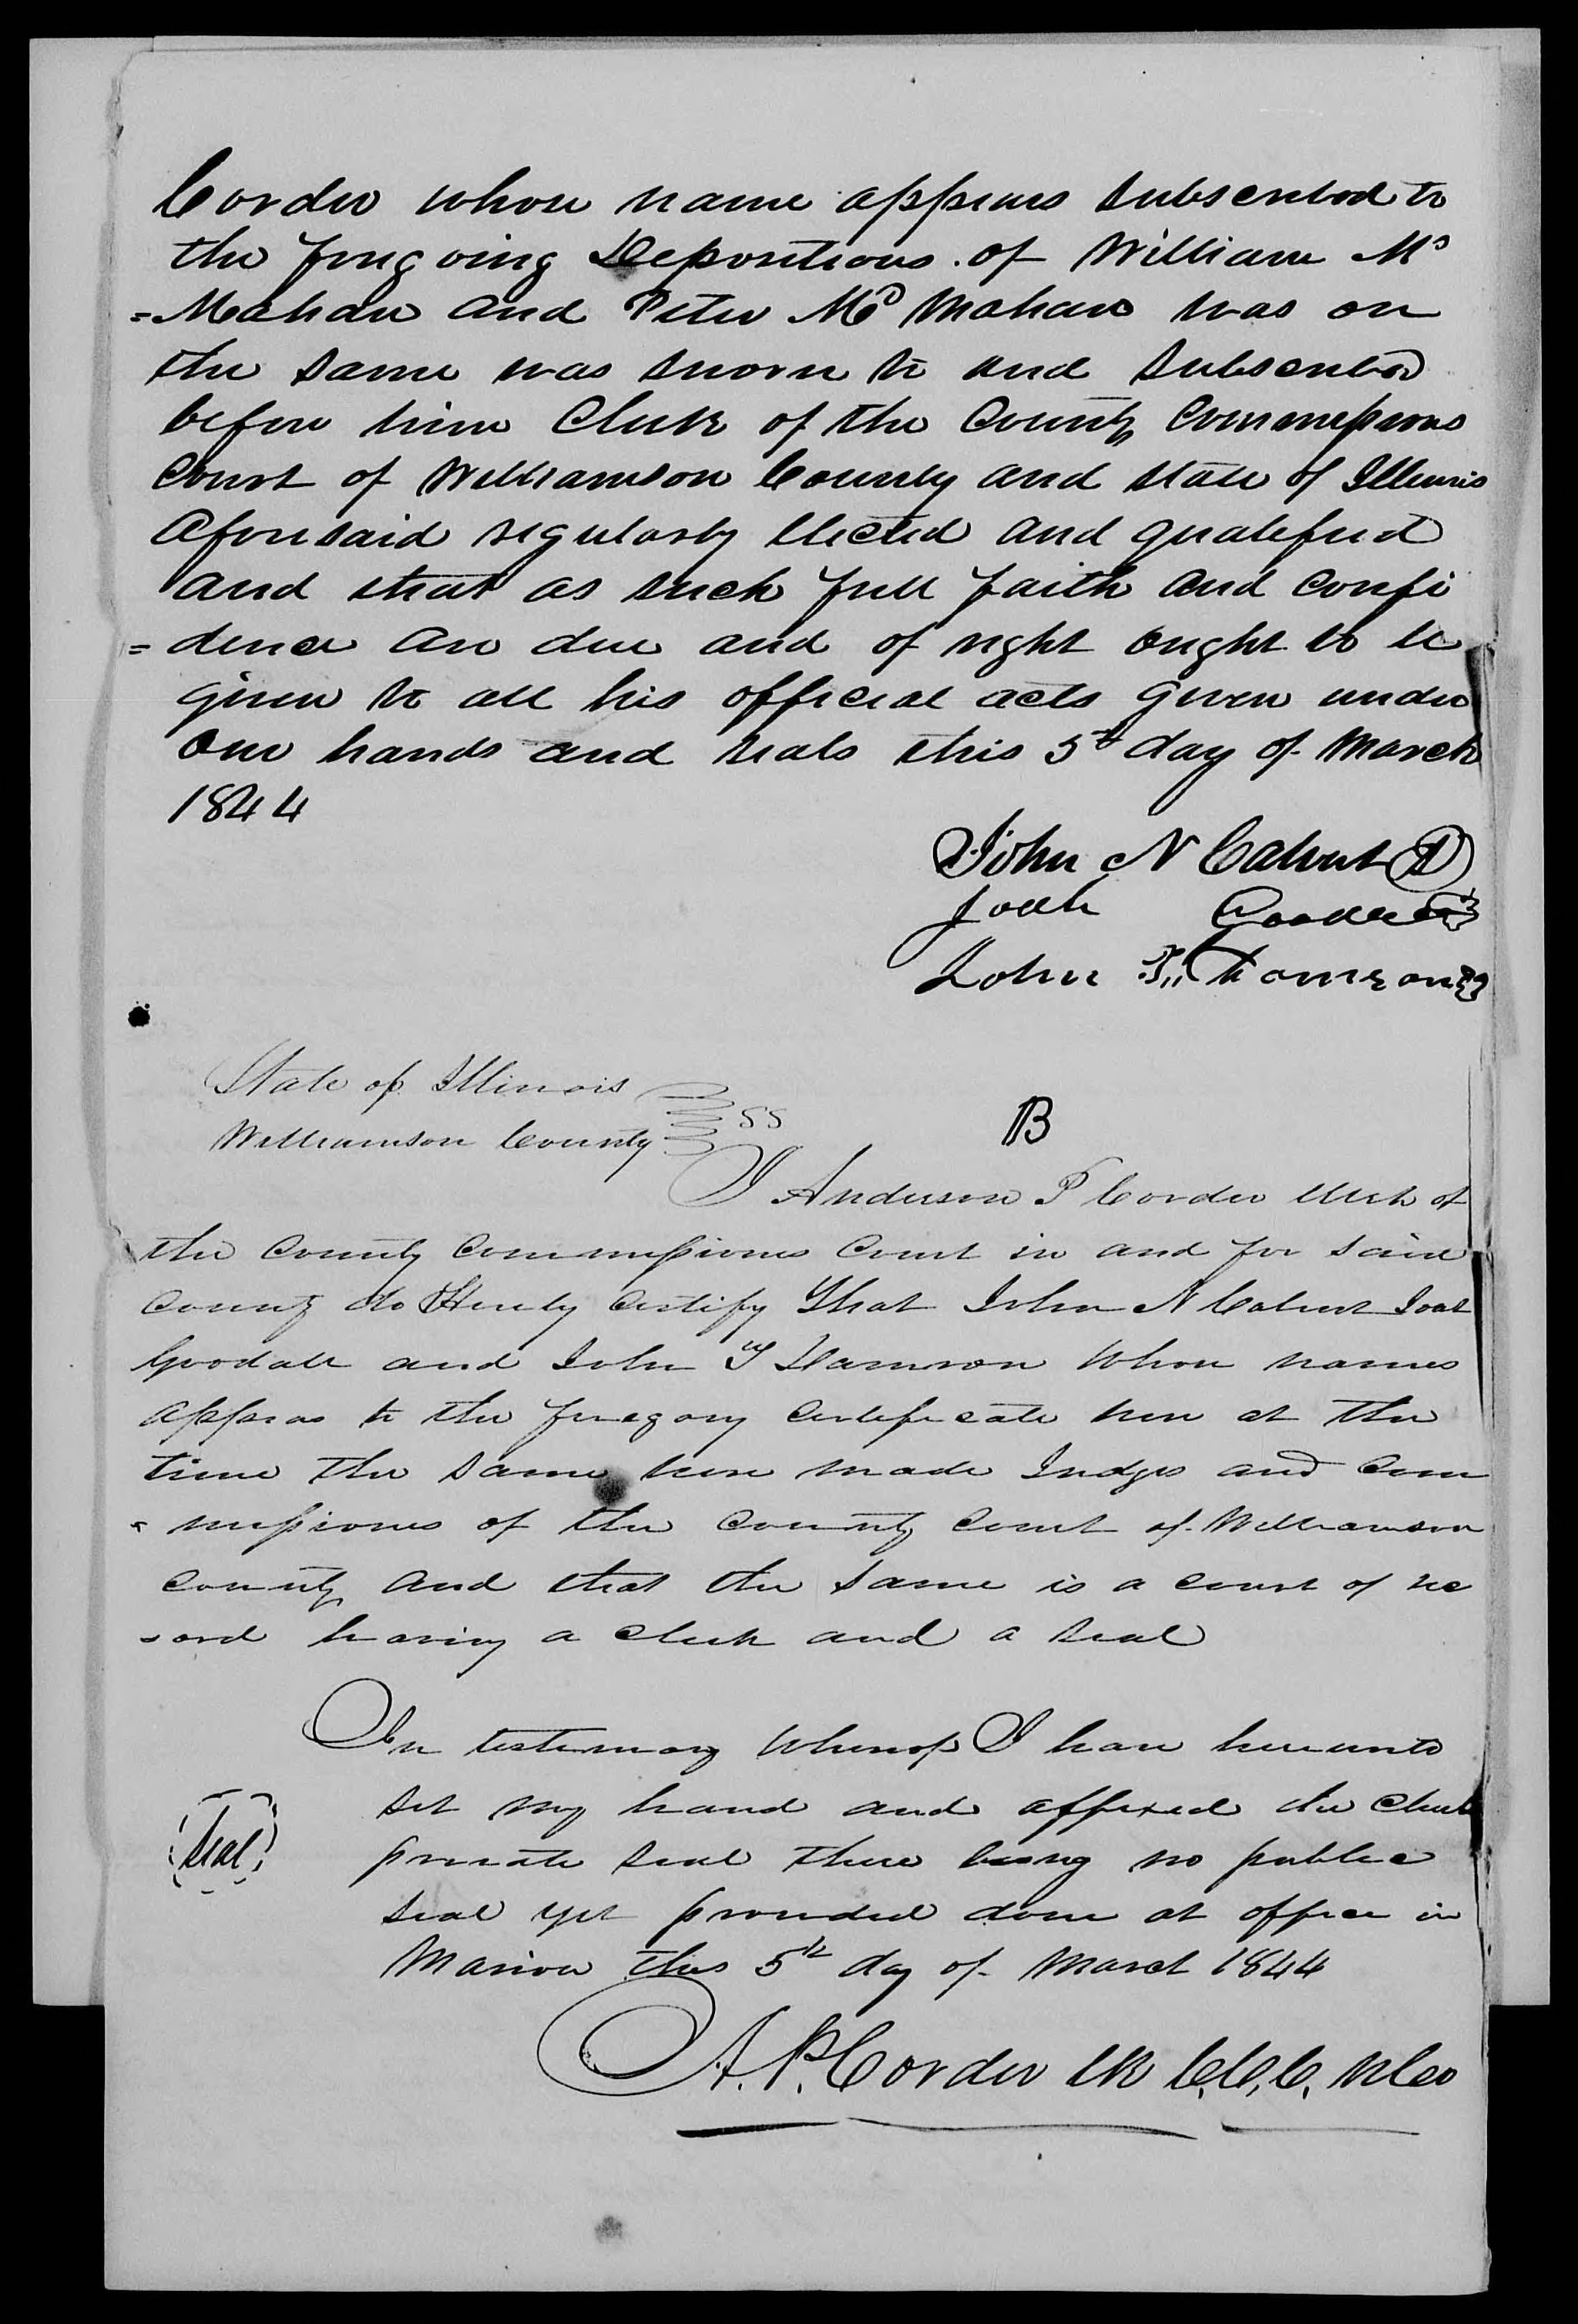 Corder whose name appears subscribed to
the foregoing Depositions of William Mc
=Mahan and Peter Mc Mahan was on
the same was sworn to and subscribed
before him Clerk of the County Commissioners
Court of Williamson County and State of Illinois
aforesaid regularly elected and qualified
and that as such full faith and confi
=dence are due and of right ought to be
given to all his official acts given under
our hands and seals this 5th day of March
1844
John N Calvert
Joab Goodall
John T. Thomson
State of Illinois
Williamson County SS
B
I Anderson P Corder Clerk of
the County Commissioners Court in and for said
County do Hereby Certify That John N Calvert Joab
Goodall and John T Damron whose names
appears to the foregoing certificate were at the
time the same were made Judges and Com
=missioners of the County Court of Williamson
County and that the same is a court of re
=cord having a clerk and a seal
In testimony whereof I have hereunto
set my hand and affixed the Clerk
private seal there being no public
seal yet provided done at office in
Marion this 5th day of March 1844
Seal
A. P. Corder Clk C.C.C. W Co